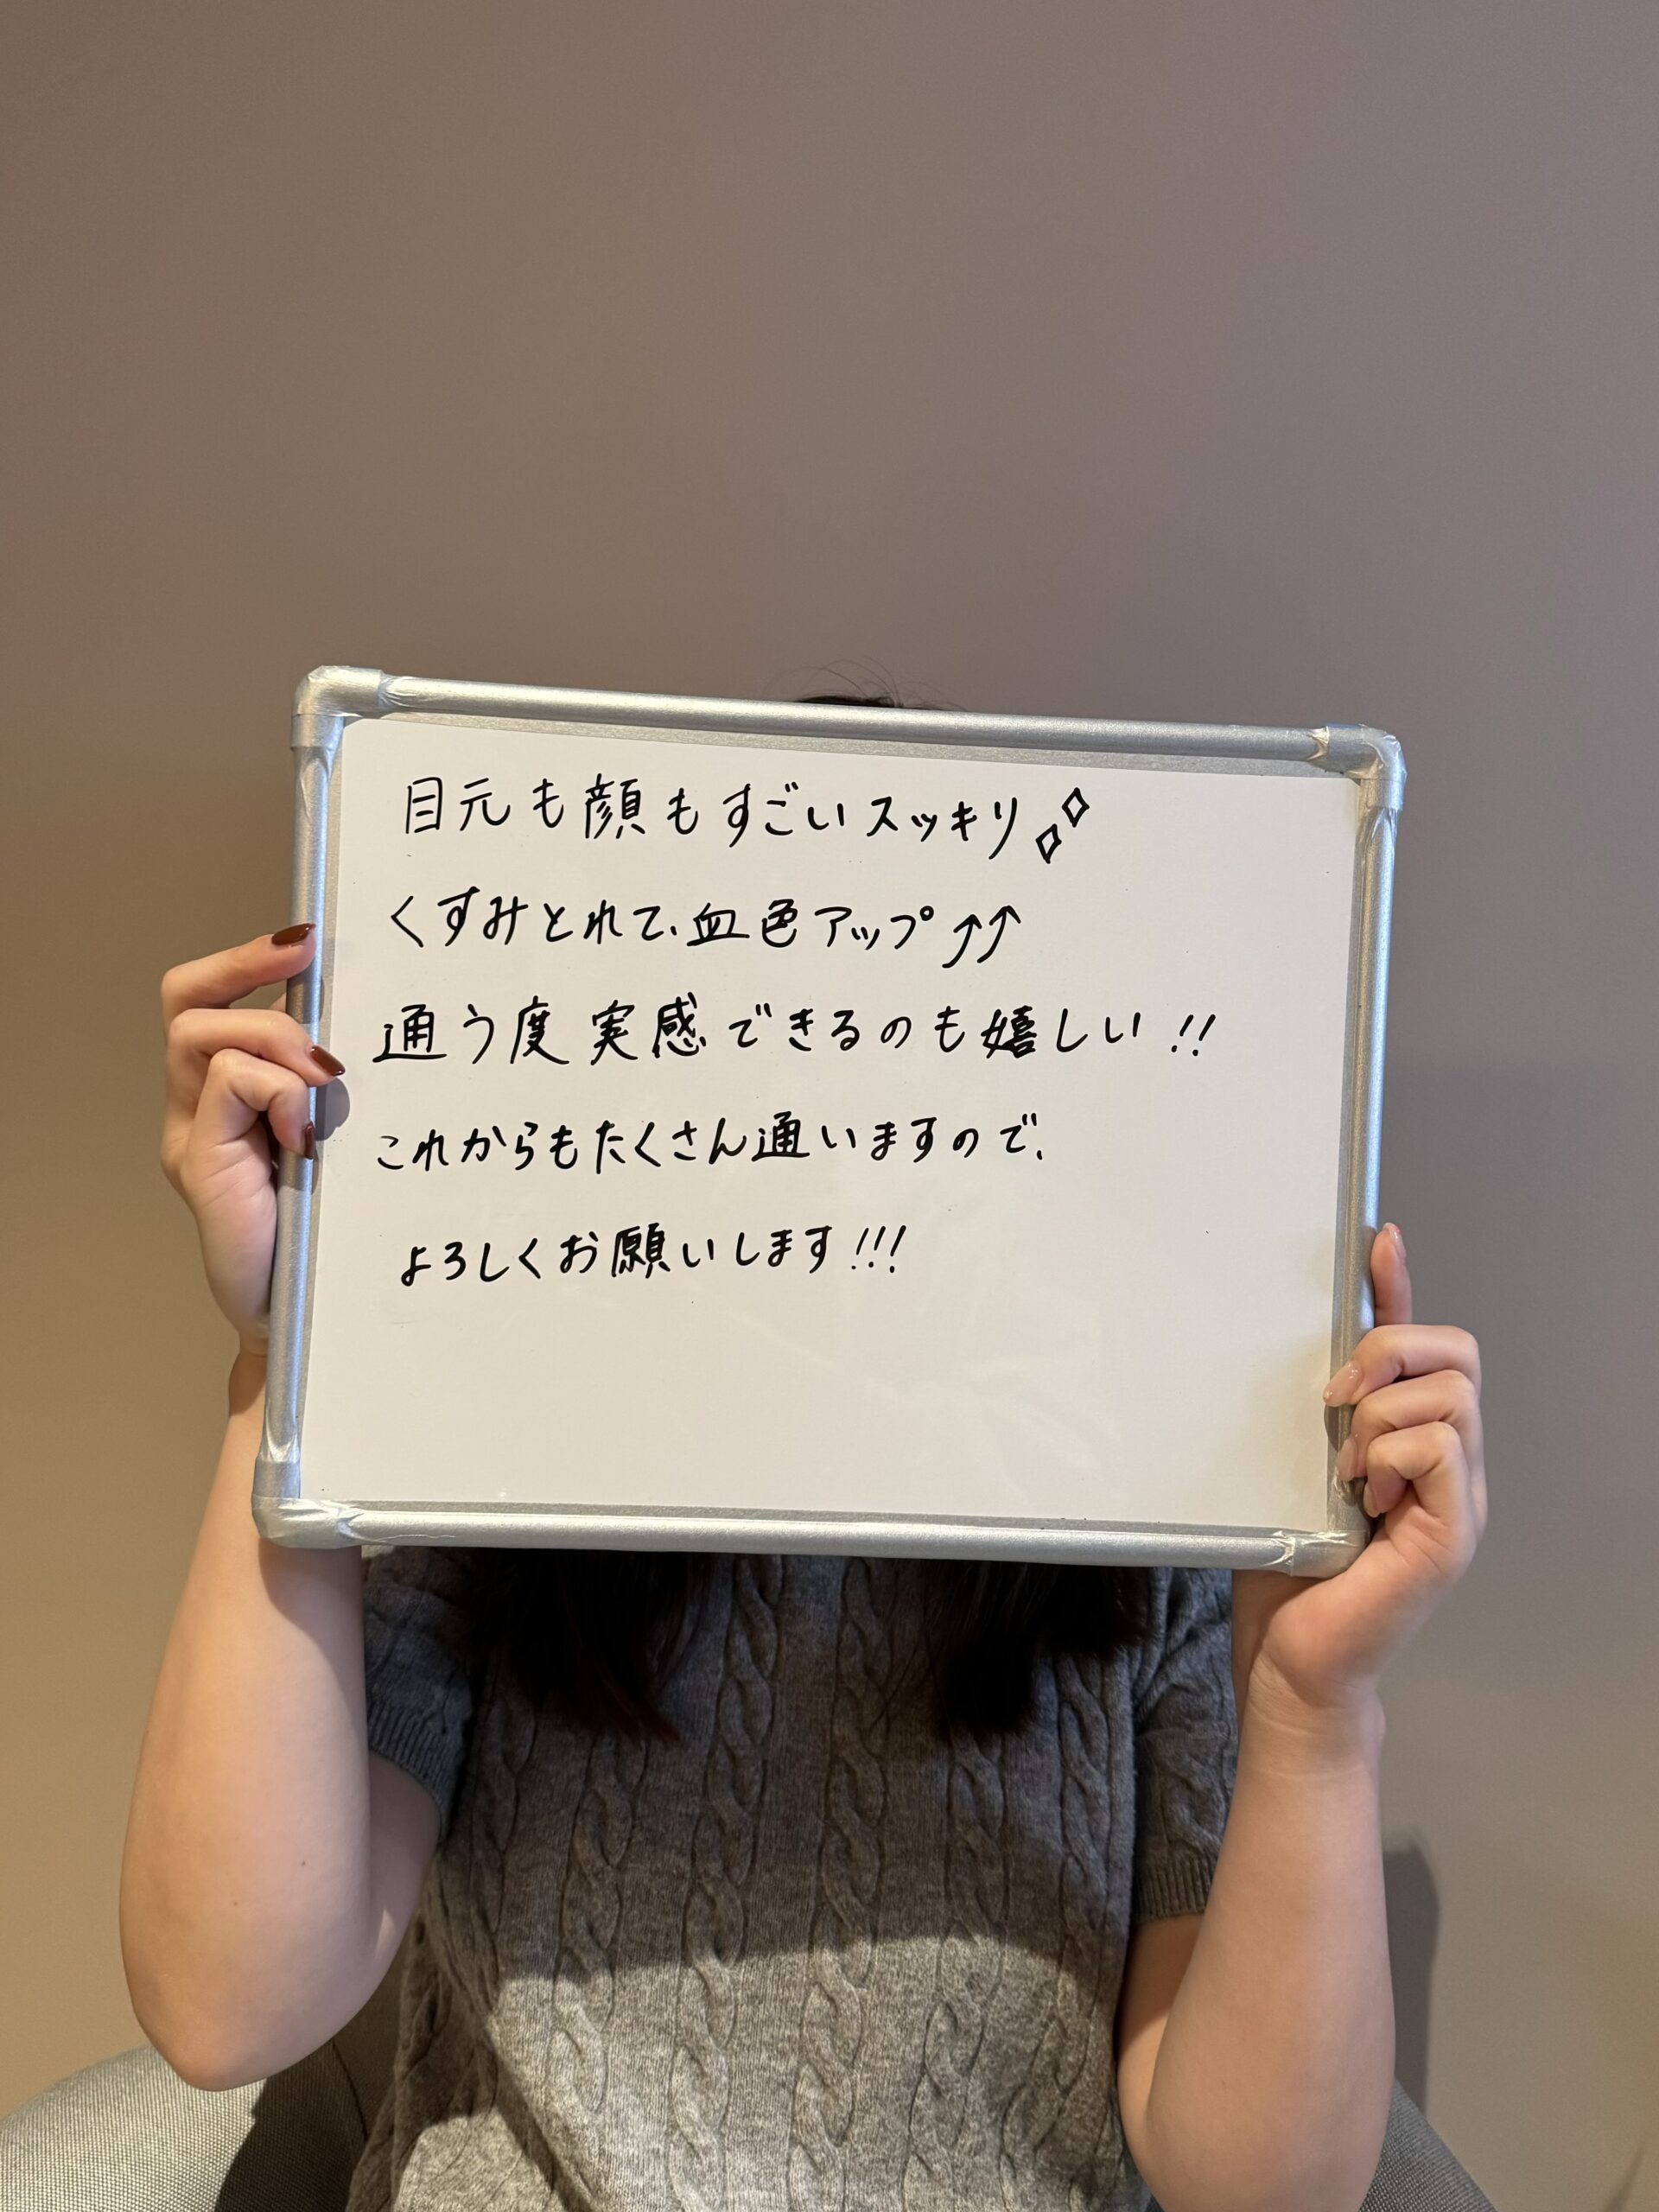 目元も顔もすごいスッキリ✧✧
くすみとれて、血色アップ⤴⤴
通う度実感できるのも嬉しい!!
これからもたくさん通いますので、
よろしくお願いします!!!